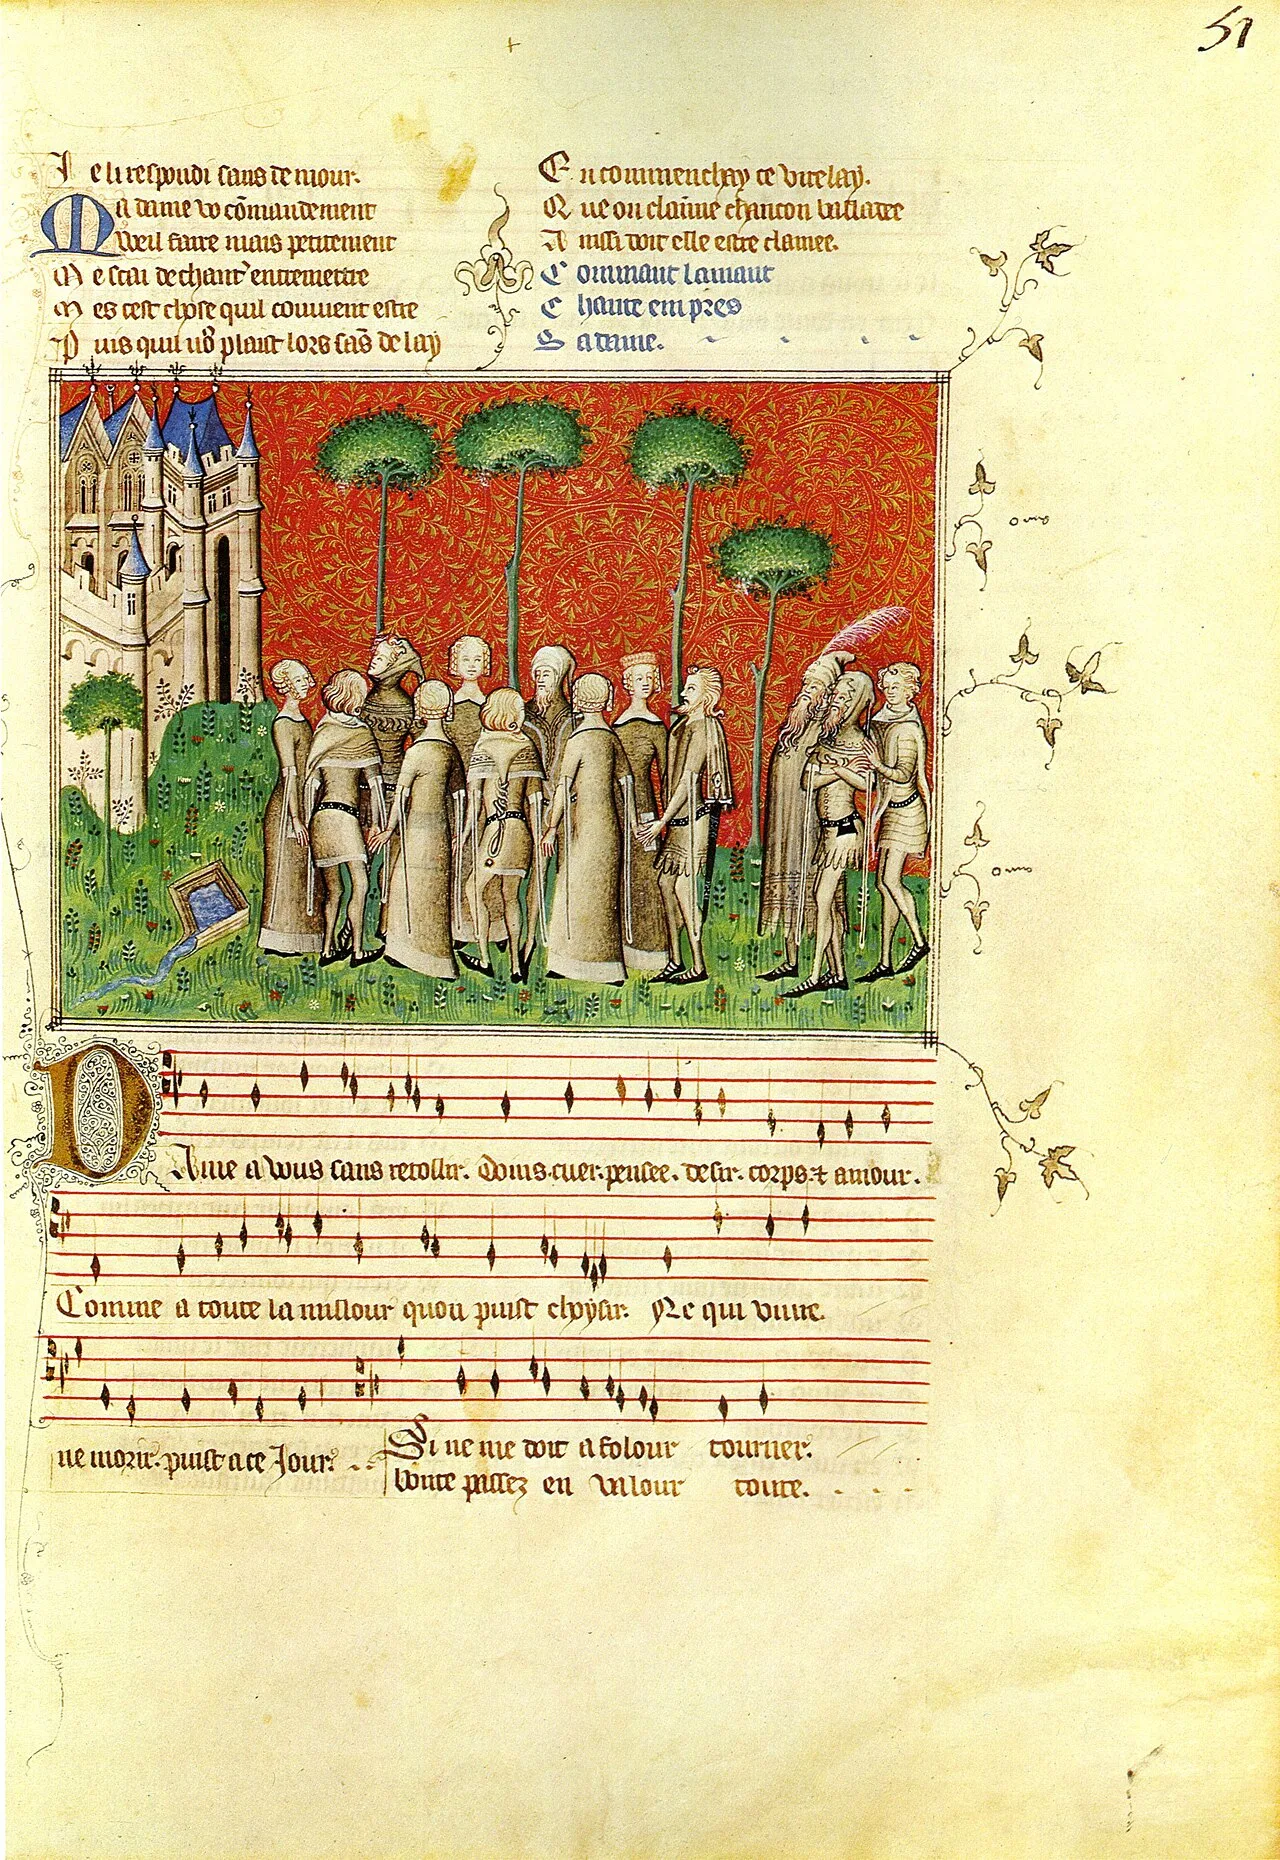 51
Je li respondi sans demour.
Ma dame vo cōmandement
Weil faire mais petitement
Me scai de chant' entremettre
Mes cest chose quil couuient estre
Puis quil vo9 plaist lors sās delay
En commenchay ce virelay.
Que on claimme chancon balladee
Ainssi doit elle estre clamee.
Commant lamant
Chante empres
Sa dame.
Dame a vous sans retollir. Doins. cuer. pensee. desir. corps. ⁊ amour.
Comme a toute la millour quon puist choysir. Ne qui viure.
ne morir. puist a ce Jour.
Si ne me doit a folour tourner.
bonte passez en valour toute.